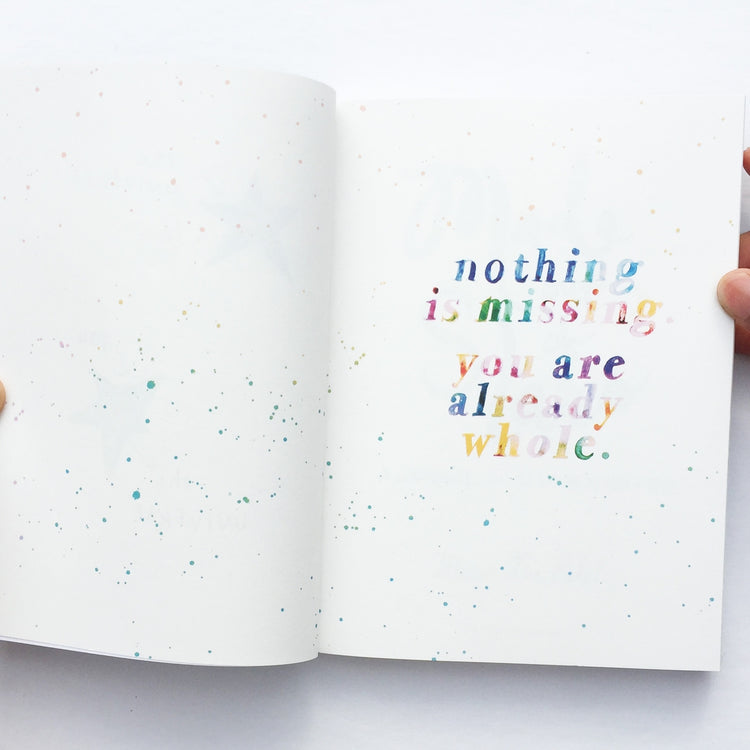 nothing
is missing.
you are
already
whole.